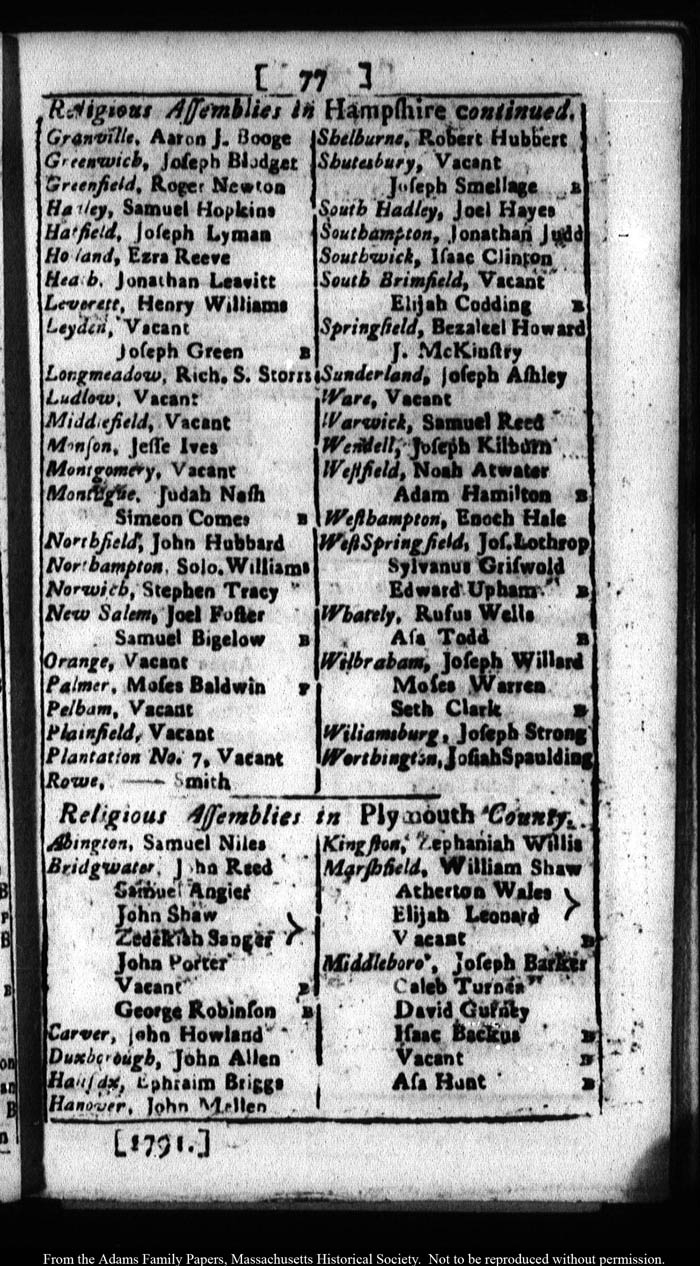 [ 77 ]
Religious Aſſemblies in Hampſhire continued.
Granville, Aaron J. Booge
Greenwich, Joſeph Blodget
Greenfield, Roger Newton
Hadley, Samuel Hopkins
Hatfield, Joſeph Lyman
Holland, Ezra Reeve
Heath, Jonathan Leavitt
Leverett, Henry Williams
Leyden, Vacant
Joſeph Green B
Longmeadow, Rich. S. Storrs
Ludlow, Vacant
Middlefield, Vacant
Monſon, Jeſſe Ives
Montgomery, Vacant
Montague, Judah Naſh
Simeon Comes B
Northfield, John Hubbard
Northampton, Solo. Williams
Norwich, Stephen Tracy
New Salem, Joel Foſter
Samuel Bigelow B
Orange, Vacant
Palmer, Moſes Baldwin P
Pelham, Vacant
Plainfield, Vacant
Plantation No. 7, Vacant
Rowe, —— Smith
Shelburne, Robert Hubbert
Shuteſbury, Vacant
Joſeph Smellage B
South Hadley, Joel Hayes
Southampton, Jonathan Judd
Southwick, Iſaac Clinton
South Brimfield, Vacant
Elijah Codding B
Springfield, Bezaleel Howard
J. McKinſtry
Sunderland, Joſeph Aſhley
Ware, Vacant
Warwick, Samuel Reed
Wendell, Joſeph Kilburn
Weſtfield, Noah Atwater
Adam Hamilton B
Weſthampton, Enoch Hale
Weſt Springfield, Joſ. Lothrop
Sylvanus Griſwold
Edward Upham B
Whately, Rufus Wells
Aſa Todd B
Wilbraham, Joſeph Willard
Moſes Warren
Seth Clark B
Wiliamsburg, Joſeph Strong
Worthington, Joſiah Spaulding
Religious Aſſemblies in Plymouth County.
Abington, Samuel Niles
Bridgwater, John Reed
Samuel Angier
John Shaw
Zedekiah Sanger
John Porter
Vacant B
George Robinſon B
Carver, John Howland
Duxborough, John Allen
Halifax, Ephraim Briggs
Hanover, John Mellen
Kingſton, Zephaniah Willis
Marſhfield, William Shaw
Atherton Wales
Elijah Leonard
Vacant B
Middleboro', Joſeph Barker
Caleb Turner
David Gurney
Iſaac Backus B
Vacant B
Aſa Hunt B
[1791.]
From the Adams Family Papers, Massachusetts Historical Society. Not to be reproduced without permission.